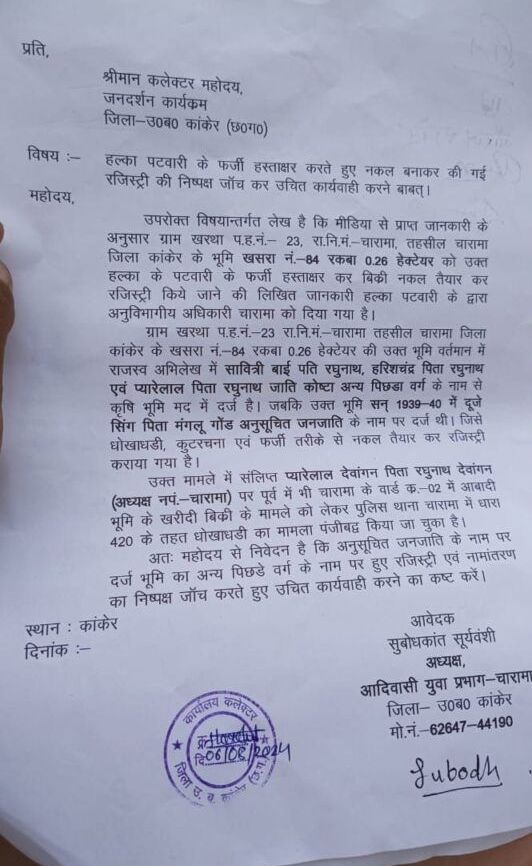 प्रति,
श्रीमान कलेक्टर महोदय,
जनदर्शन कार्यक्रम
जिला–उ0ब0 कांकेर (छ0ग0)
विषय :– हल्का पटवारी के फर्जी हस्ताक्षर करते हुए नकल बनाकर की गई
रजिस्ट्री की निष्पक्ष जॉच कर उचित कार्यवाही करने बाबत्।
महोदय,
उपरोक्त विषयान्तर्गत लेख है कि मीडिया से प्राप्त जानकारी के
अनुसार ग्राम खरथा प.ह.नं.– 23, रा.नि.मं.–चारामा, तहसील चारामा
जिला कांकेर के भूमि खसरा नं.–84 रकबा 0.26 हेक्टेयर को उक्त
हल्का के पटवारी के फर्जी हस्ताक्षर कर बिकी नकल तैयार कर
रजिस्ट्री किये जाने की लिखित जानकारी हल्का पटवारी के द्वारा
अनुविभागीय अधिकारी चारामा को दिया गया है।
ग्राम खरथा प.ह.नं.–23 रा.नि.मं.–चारामा तहसील चारामा जिला
कांकेर के खसरा नं.–84 रकबा 0.26 हेक्टेयर की उक्त भूमि वर्तमान में
राजस्व अभिलेख में सावित्री बाई पति रघुनाथ, हरिशचंद्र पिता रघुनाथ
एवं प्यारेलाल पिता रघुनाथ जाति कोष्टा अन्य पिछडा वर्ग के नाम से
कृषि भूमि मद में दर्ज है। जबकि उक्त भूमि सन् 1939–40 में दूजे
सिंग पिता मंगलू गोंड अनुसूचित जनजाति के नाम पर दर्ज थी। जिसे
धोखाधडी, कुटरचना एवं फर्जी तरीके से नकल तैयार कर रजिस्ट्री
कराया गया है।
उक्त मामले में संलिप्त प्यारेलाल देवांगन पिता रघुनाथ देवांगन
(अध्यक्ष नपं.–चारामा) पर पूर्व में भी चारामा के वार्ड क.–02 में आबादी
भूमि के खरीदी बिकी के मामले को लेकर पुलिस थाना चारामा में धारा
420 के तहत धोखाधडी का मामला पंजीबद्व किया जा चुका है।
अतः महोदय से निवेदन है कि अनुसूचित जनजाति के नाम पर
दर्ज भूमि का अन्य पिछडे वर्ग के नाम पर हुए रजिस्ट्री एवं नामांतरण
का निष्पक्ष जॉच करते हुए उचित कार्यवाही करने का कष्ट करें।
स्थान : कांकेर
दिनांक :–
आवेदक
सुबोधकांत सूर्यवंशी
अध्यक्ष,
आदिवासी युवा प्रभाग–चारामा
जिला– उ0ब0 कांकेर
मो.नं.–62647–44190
Subodh
कार्यालय कलेक्टर
क्र.
दि. 06/08/2024
जिला उ. ब. कांकेर (छ.ग.)